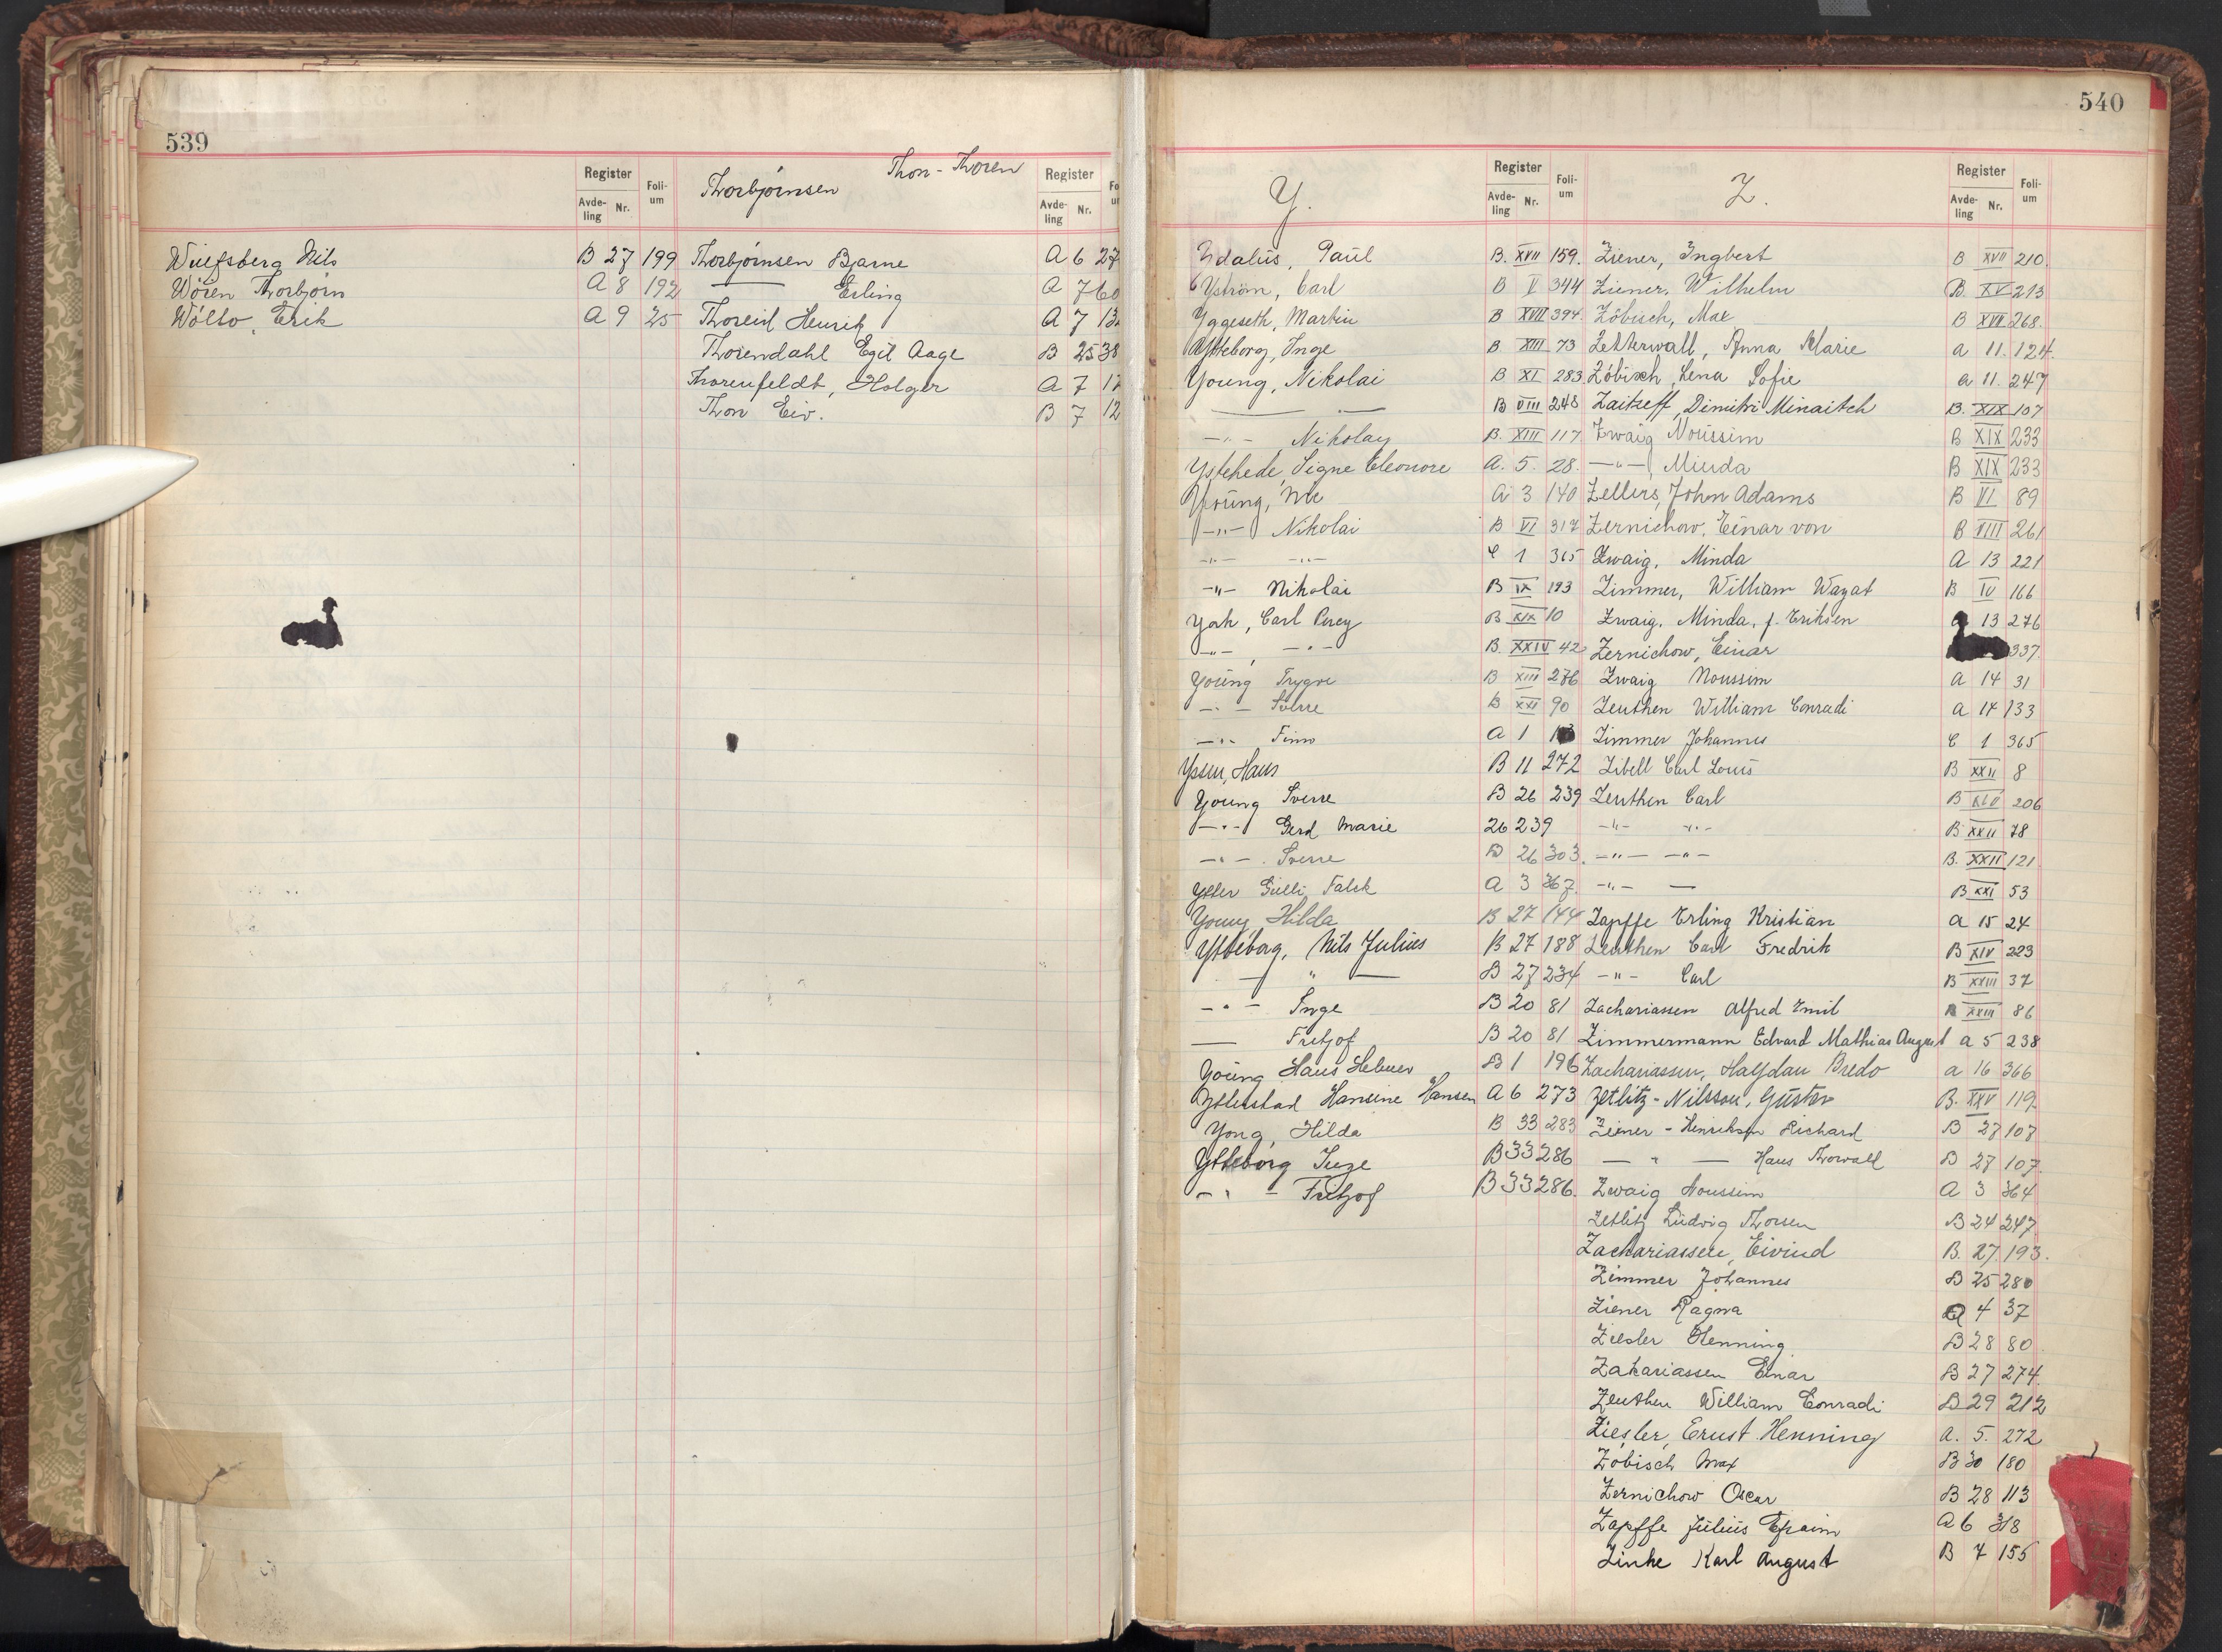 539
Register
Avde-ling Nr.
Foli-um
Thorbjørnsen
Thon - Thoren
Register
Avde-ling Nr.
Wulfsberg Nils B 27 199
Wören Thorbjørn A 8 192
Wölto, Erik A 9 25
Thorbjørnsen Bjarne A 6 27
—— Erling A 7 60
Thoreid Henrik A 7
Thorendahl Egil Aage B 25 38
Thorenfeldt, Holger A 7
Thon Eiv. B 7 12
540
Y.
Register
Avde-ling Nr.
Foli-um
Z.
Register
Avde-ling Nr.
Foli-um
Ydalus, Paul B. XVII 159.
Yström, Carl B V 344
Yggeseth, Martin B XVII 394.
Ytteborg, Inge B. XIII 73
Young, Nikolai B XI 283
—— — B VIII 248
—"— Nikolay B. XIII 117
Ystehede, Signe Eleonore A. 5. 28.
Young, A 3 140
—"— Nikolai B VI 317
—"— —"— C 1 365
—"— Nikolai B IX 193
York, Carl Percy B XIX 10
—"—, —"— B. XXIV 42
Young Trygve B XIII 276
—"— Sverre B XXI 90
—"— Finn A 1
Yssen, Hans B 11 272
Young Sverre B 26 239
—"— Gerd Marie 26 239
—"— Sverre B 26 303.
Ytter Gulli Falck A 3 367.
Young Hilda B 27 144
Ytteborg, Nils Julius B 27 188
— " — B 27 234
—"— Inge B 20 81
—— Fritjof B 20 81
Young Hans Helmer B 1 196
Ytterstad Hansine Hansen A 6 273
Yong, Hilda B 33 283
Ytteborg Inge B 33 286
—"— Fritjof B 33 286.
Ziener, Ingbert B XVII 210.
Ziener, Wilhelm B. XV 213
Zöbisch, Max B XVII 268.
Zetterwall, Anna Marie A 11. 124.
Zöbisch, Lena Sofie A 11. 247
Zaitzeff, Dimitri Minaitch B. XIX 107
Zwaig Noussim B XIX 233
—"— Minda B XIX 233
Zellers, John Adams B VI 89
Zernichow, Einar von B VIII 261
Zwaig, Minda A 13 221
Zimmer, William Wayat B IV 166
Zwaig, Minda, f. Eriksen A 13 276
Zernichow, Einar 337.
Zwaig Noussim A 14 31
Zeuthen William Conradi A 14 133
Zimmer Johannes C 1 365
Zibell Carl Louis B XXII 8
Zeuthen Carl B XIV 206
—"— —"— B XXII 78
—"— —"— B. XXII 121
—"— — B XXI 53
Zapffe Erling Kristian A 15 24
Zeuthen Carl Fredrik B XIV 223
—"— Carl B XXIII 37
Zachariassen Alfred Emil B XXIII 86
Zimmermann Edvard Mathias August A 5 238
Zachariassen, Halfdan Bredo A 16 366
Zetlitz-Nilsson, Gustav B. XXV 119.
Ziener - Henriksen Richard B 27 107
— " — Hans Thorvall B 27 107.
Zwaig Noussim A 3 364
Zetlitz Ludvig Thorsen B 24 247.
Zachariassen, Eivind B. 27. 193.
Zimmer Johannes B 25 280
Ziener Ragna A 4 37
Ziesler Henning B 28 80
Zakariassen Einar B 27 274.
Zeuthen William Conradi B 29 212
Ziesler, Ernst Henning A. 5. 272
Zöbisch Max B 30 180
Zernichow Oscar B 28 113
Zapffe Julius Efraim A 6 318
Zinke Karl August B 7 155